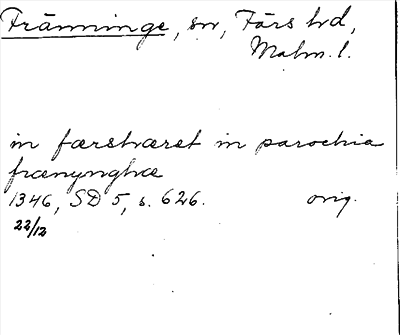 Tränninge, sn, Färs hd,
Malm. l.
in færshæret in parochia
frænynghæ
1346, SD 5, s. 626. orig.
22/12